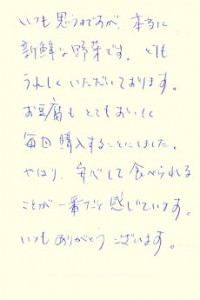 いつも思うのですが、本当に
新鮮な野菜です。とても
うれしくいただいております。
お豆腐もとてもおいしく
毎回購入することにしました。
やはり、安心して食べられる
ことが一番だと感じています。
いつもありがとうございます。